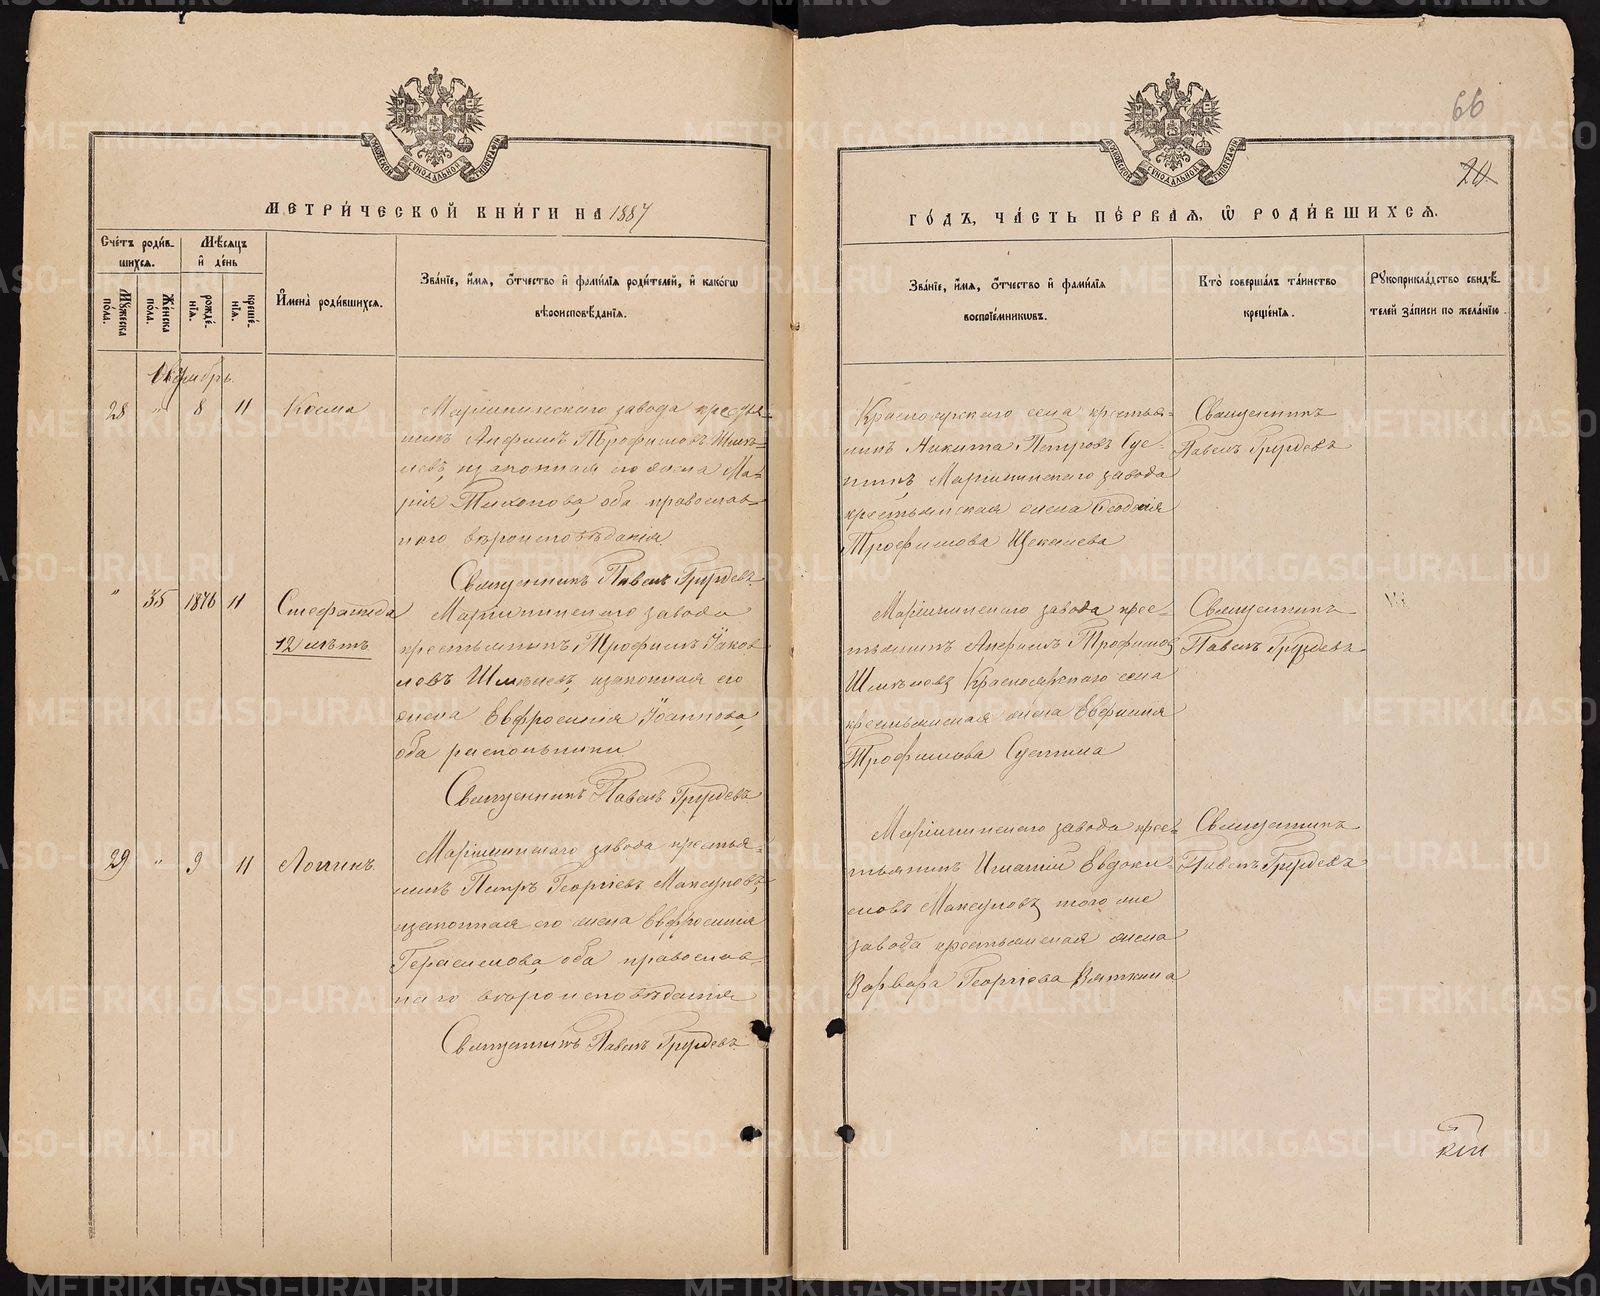 66
20
МЕТРИ́ЧЕСКОЙ КНИ́ГИ НА 1887
ГО́ДЪ, ЧА́СТЬ ПЕ́РВАЯ, Ѽ РОДИ́ВШИХСѦ.
Сче́тъ роди́в-
шихсѧ.
Мѣ́сѧцъ
и҆ де́нь
Мꙋ́жеска
по́ла.
Же́нска
по́ла.
рожде́-
нїѧ.
креще́-
нїѧ.
И҆мена̀ роди́вшихсѧ.
Зва́нїе, и҆́мѧ, ѻ҆́тчество и҆ фами́лїѧ роди́телей, и҆ како́гѡ
вѣроисповѣ́данїѧ.
Зва́нїе, и҆́мѧ, ѻ҆́тчество и҆ фами́лїѧ
воспрїе́мникѡвъ.
Кто̀ соверша́лъ та́инство
креще́нїѧ.
Рꙋкоприкла́дство свидѣ́-
телей за́писи по жела́нїю.
Октябрь.
28 " 8 11 Косма
Маріинскаго завода крестья-
нинъ Анфимъ Трофимовъ Шмы-
левъ, изаконная его жена Ма-
рія Тихонова, оба православ-
наго вѣроисповѣданія.
Священникъ Павелъ Груздевъ
Красноярскаго села крестья-
нинъ Никита Петровъ Сус-
нинъ, Маріинскаго завода
крестьянская жена Ѳеодосія
Трофимова Щекалева
Священникъ
Павелъ Груздевъ
" 35 1876 11 Стефанида
12 лѣтъ
Маріинскаго завода
крестьянинъ Трофимъ Іаков-
левъ Шмылевъ, изаконная его
жена Евфросинія Іоаннова,
оба раскольники
Священникъ Павелъ Груздевъ
Маріинскаго завода крес-
тьянинъ Анфимъ Трофимовъ
Шмылевъ Красноярскаго села
крестьянская жена Евфимія
Трофимова
Священникъ
Павелъ Груздевъ
29 " 9 11 Логинъ.
Маріинскаго завода крестья-
нинъ Петръ Георгіевъ Максуновъ,
изаконная его жена Евфросинія
Герасимова, оба православ-
наго вѣроисповѣданія
Священникъ Павелъ Груздевъ
Маріинскаго завода крес-
тьянинъ Игнатій Евдоки-
мовъ Максуновъ, того же
завода крестьянская жена
Варвара Георгіева Вяткина
Священникъ
Павелъ Груздевъ